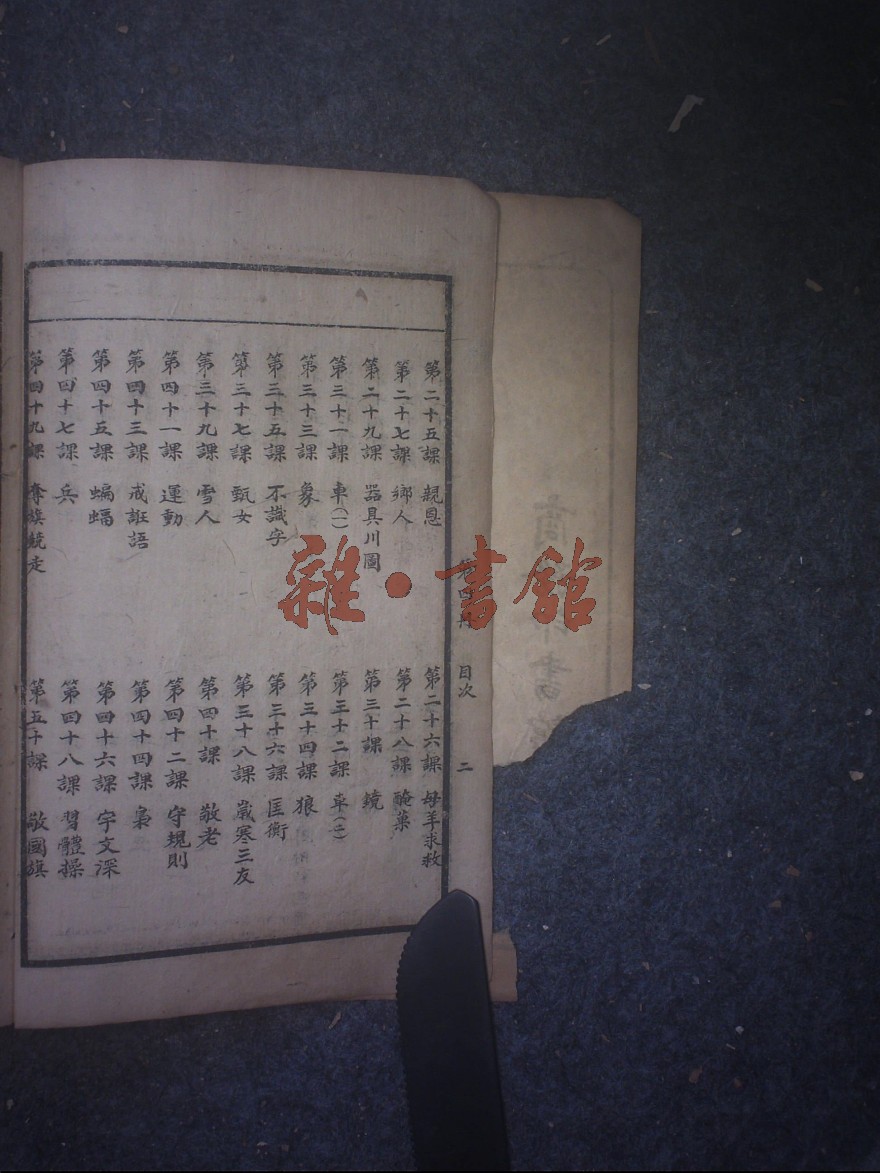 第二十五課 親恩
第二十六課 母羊求救
第二十七課 鄉人
第二十八課 醃菓
第二十九課 器具川圖
第三十課 鏡
第三十一課 車(一)
第三十二課 車(二)
第三十三課 象
第三十四課 狼
第三十五課 不識字
第三十六課 匡衡
第三十七課 甄女
第三十八課 歲寒三友
第三十九課 雪人
第四十課 敬老
第四十一課 運動
第四十二課 守規則
第四十三課 戒誑語
第四十四課 梟
第四十五課 蝙蝠
第四十六課 宇文深
第四十七課 兵
第四十八課 習體操
第四十九課 奪旗競走
第五十課 敬國旗
目次
二
雜·書館